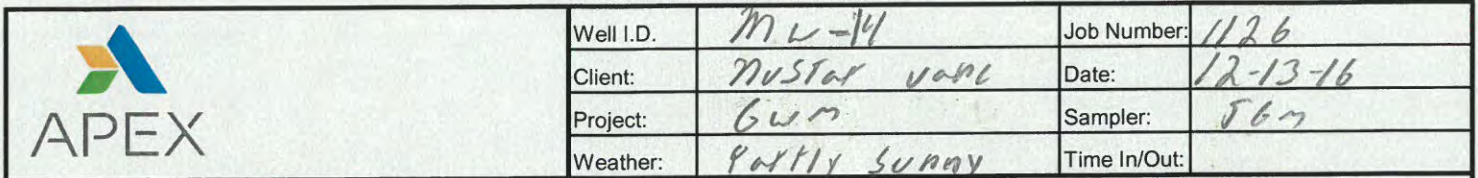 APEX
Well I.D. MW-14 Job Number: 1126
Client: NuStar vanc Date: 12-13-16
Project: GWM Sampler: JGM
Weather: Partly Sunny Time In/Out: